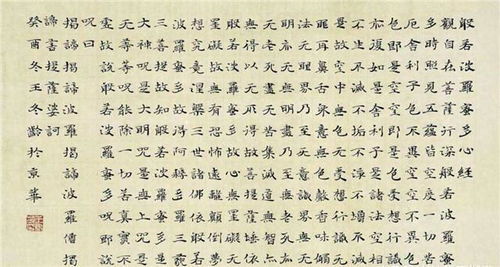 般若波羅蜜多心經
觀自在菩薩行深般若波羅蜜
多時照見五蘊皆空度一切苦
厄舍利子色不異空空不異色
色即是空空即是色受想行識
亦復如是舍利子是諸法空相
不生不滅不垢不淨不增不減
是故空中無色无受想行識无
眼耳鼻舌身意无色聲香味觸
法无眼界乃至无意識界無无
明亦无無明盡乃至无老死亦
无老死盡無苦集滅道无智亦
無得以无所得故菩提薩埵依
般若波羅蜜多故心無罣礙无
罣礙故無有恐怖遠離顛倒夢
想究竟涅槃三世諸佛依般若
波羅蜜多故得阿耨多羅三藐
三菩提故知般若波羅蜜多是
大神咒是大明咒是無上咒是
无等等咒能除一切苦真實不
虛故說般若波羅蜜多咒即說
咒曰
揭諦揭諦波羅揭諦波羅僧揭
諦菩提薩婆訶
癸酉冬王冬齡於京華